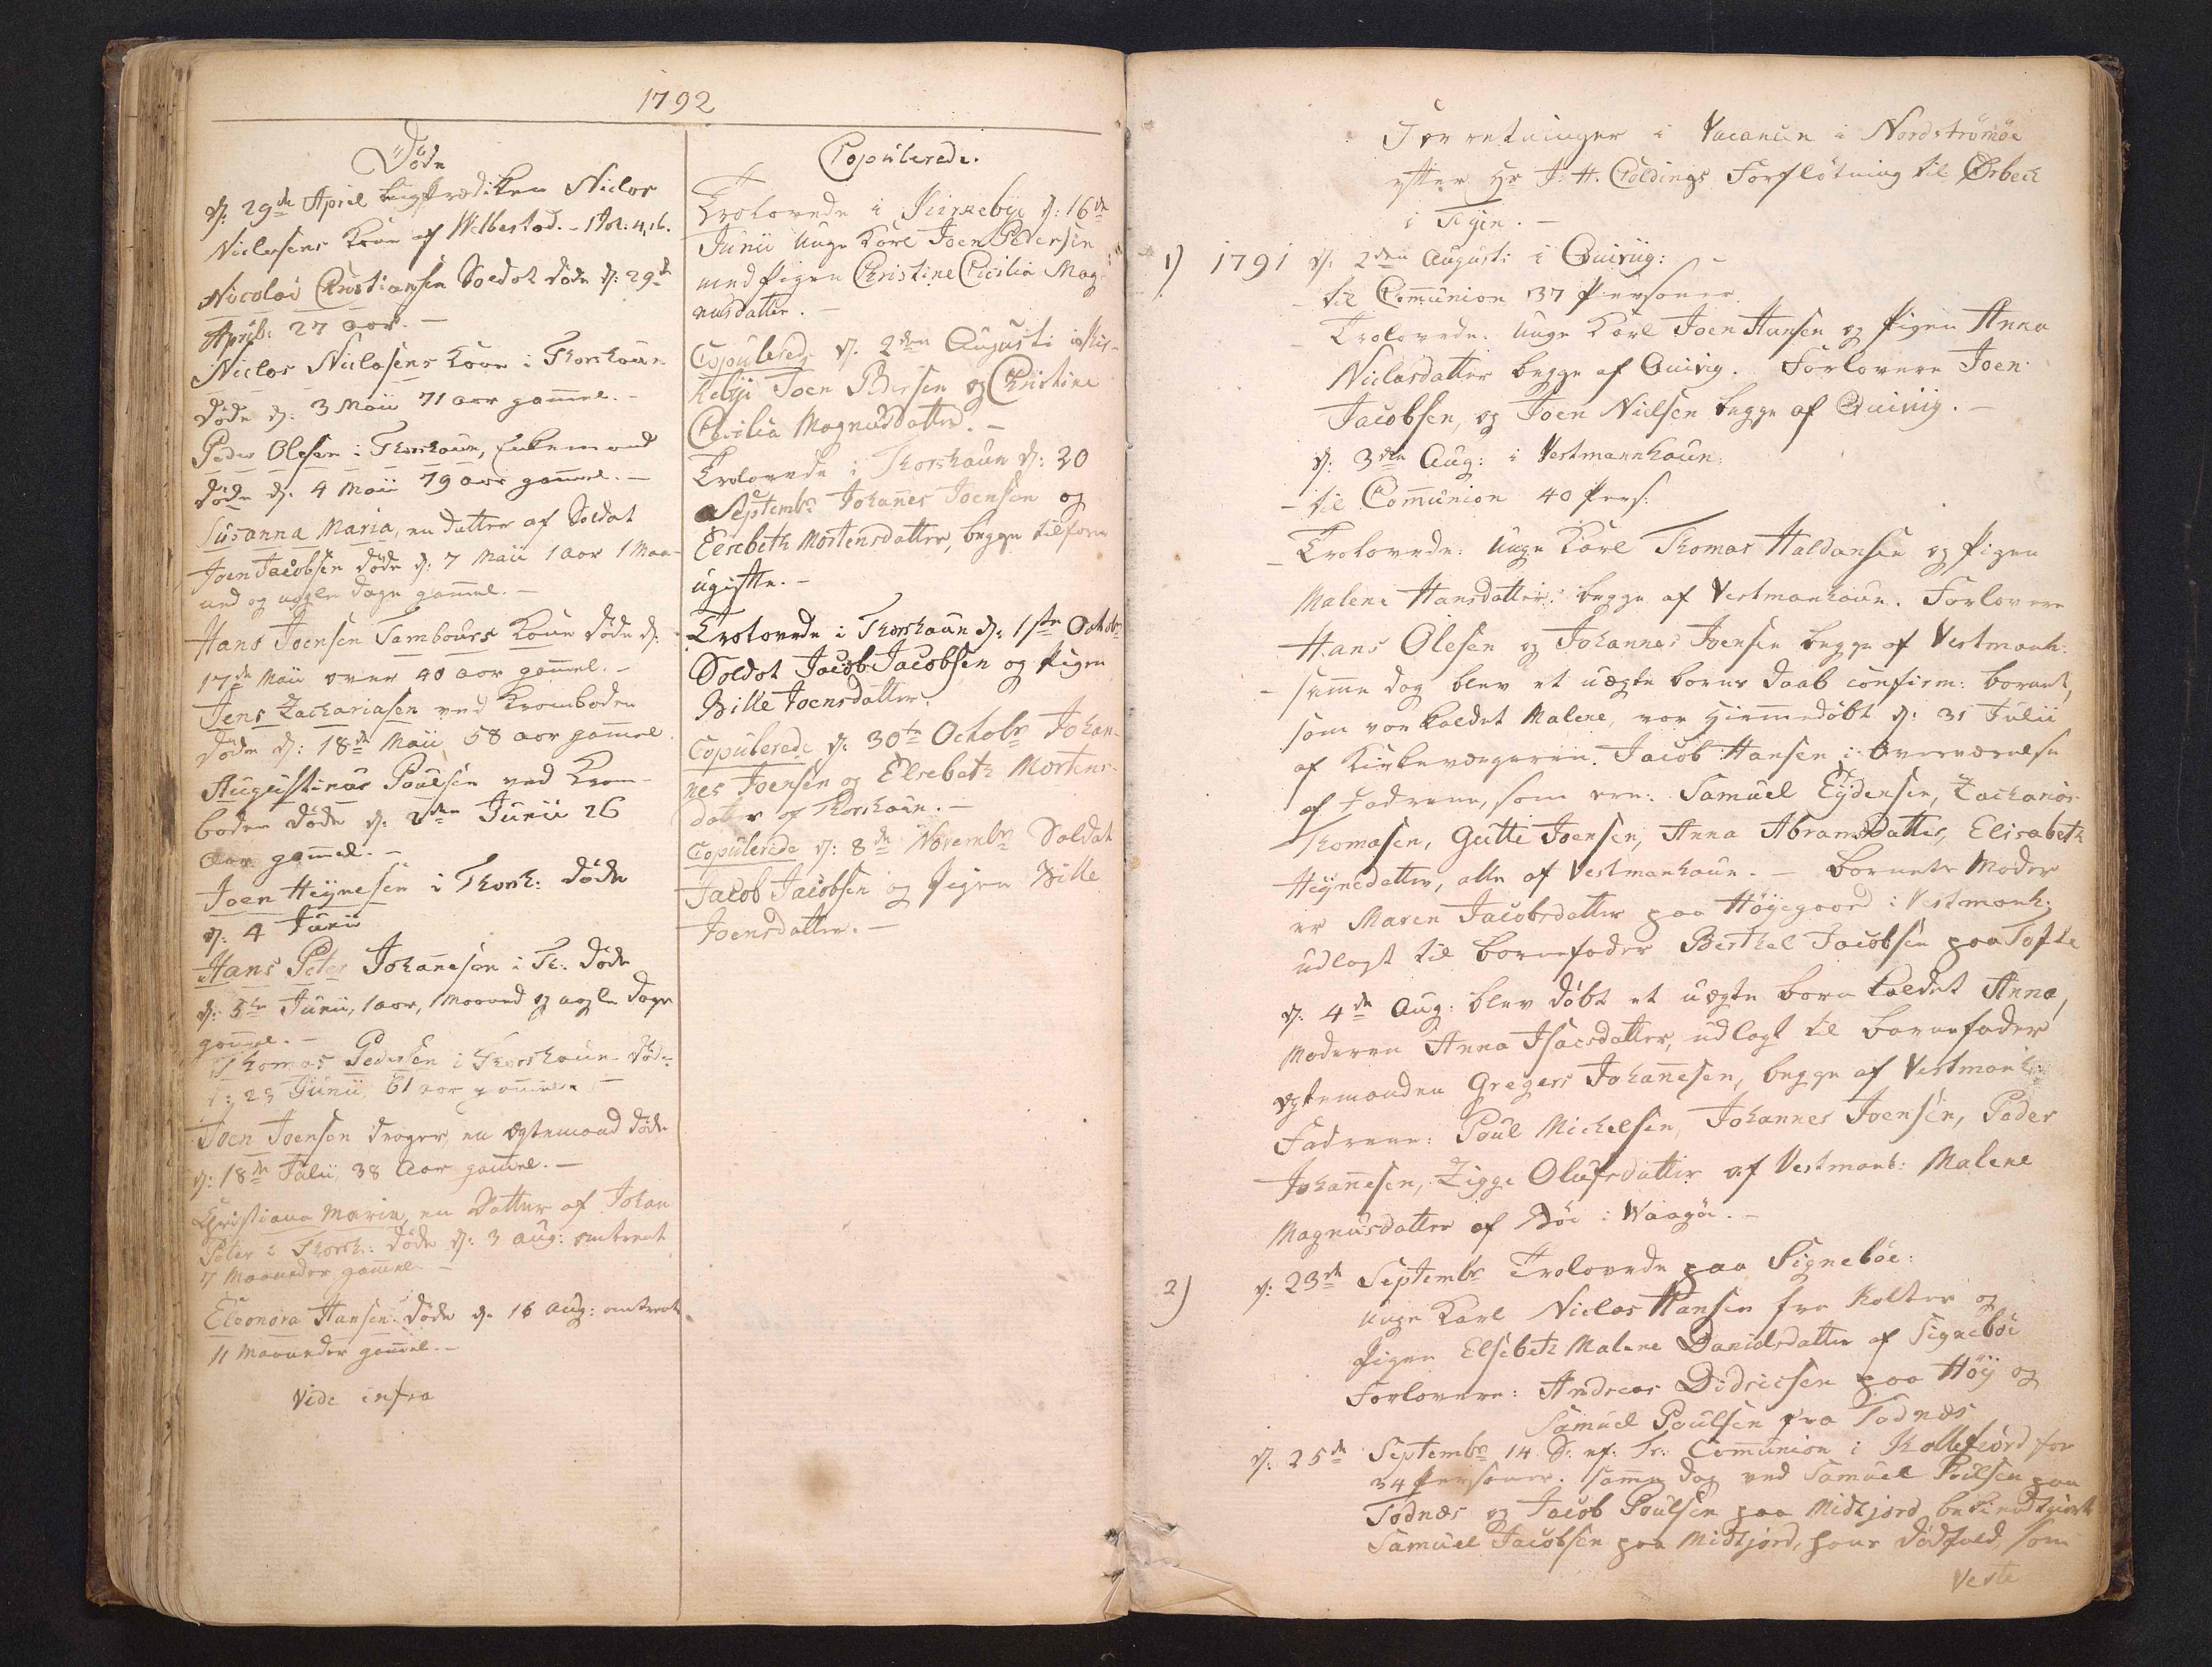 1792
Døde
d: 29de April Niclas
Niclasens Kone af Welbestad. - 1 Tol: 4,16.
Nicolai Christiansen Soldat døde d: 29de
April: 27 aar. -
Niclas Niclasens Kone i Thorshaun
døde d: 3 Maii 71 aar gammel. -
Peder Olesen i Thorshaun, Enkemand
døde d: 4 Maii 79 aar gammel. -
Susanna Maria, en datter af Soldat
Joen Jacobsen døde d: 7 Maii 1 aar 1 Maa-
ned og nogle dage gammel. -
Hans Joensen Tambours Kone døde d:
17de Maii over 40 aar gammel. -
Jens Zachariasen ved Kromboden
døde d: 18de Maii 58 aar gammel
Augustinus Poulsen ved Krom-
boden døde d: 2den Junii 26
Aar gammel. -
Joen Heÿnesen i Thorsh: døde
d: 4 Junii
Hans Peter Johannesen i Th: døde
d: 5te Junii, 1 aar, 1 Maaned og nogle dage
gammel. -
Thomas Pedersen i Thorshaun døde
d: 23 Junii, 61 aar gammel -
Joen Joensen Dreÿer, en Egtemand døde
d: 18de Julii, 38 Aar gammel. -
Christiana Maria, en Datter af Johan
Peter i Thorsh: døde d: 3 Aug: omtrent
7 Maaneder gammel -
Eleonora Hansen døde d: 16 Aug: omtrent
11 Maaneder gammel. -
Vide infra
Copulerede.
Trolovede i Kirkebÿe d: 16de
Junii Unge Karl Joen Pedersen
med Pigen Christine Cicilia Mag-
nusdatter. -
Copulerede d: 2den Augusti i Kir-
kebÿe Joen Pedersen og Christine
Cicilia Magnusdatter. -
Trolovede i Thorshaun d: 30
Septembr Johannes Joensen og
Elsebeth Mortensdatter, begge tilforn
ugifte. -
Trolovede i Thorshaun d: 1ste Octobr
Soldat Jacob Jacobsen og Pigen
Bille Joensdatter.
Copulerede d: 30te Octobr Johan-
nes Joensen og Elsebeth Mortens-
datter af Thorshaun. -
Copulerede d: 8de Novembr Soldat
Jacob Jacobsen og Pigen Bille
Joensdatter. -
Forretninger i Vacancen i Nordstrømøe
efter Hr J. H. Coldings Forfløtning til Ørbech
i Fÿen. -
1) 1791 d: 2den Augusti i Quivüg: -
- til Communion 37 Personer.
- Trolovede: Unge Karl Joen Hansen og Pigen Anna
Niclasdatter begge af Quivig. Forlovere Joen
Jacobsen, og Joen Nielsen begge af Quivüg. -
d: 3die Aug: i Vestmannhaun:
- til Communion 40 Pers:
- Trolovede: Unge Karl Thomas Haldansen og Pigen
Malene Hansdatter: begge af Vestmanhaun. Forlovere
Hans Olesen og Johannes Joensen begge af Vestmanh:
- samme dag blev et uægte borns daab confirm: bornet,
som var kaldet Malene, var Hiemmedøbt d: 31 Julii
af Kirkeværgeren Jacob Hansen i Overværelse
af Fadrene, som ere: Samuel Eÿdensen, Zacharias
Thomasen, Gutte Joensen, Anna Abramsdatter, Elisabeth
Heÿnedatter, alle af Vestmanhaun. - bornets Moder
er Maren Jacobsdatter paa Høÿegaard i Vestmanh:
udlagt til bornefader Berthel Jacobsen paa Tofte
d: 4de Aug: blev døbt et uægte born kaldet Anna,
Moderen Anna Isacsdatter, udlagt til bornefader
Egtemanden Gregers Johannesen, begge af Vestmanh:
Fadrene: Poul Michelsen, Johannes Joensen, Peder
Johannesen, Zigge Olufsdatter af Vestmanh: Malene
Magnusdatter af Bøe i Waagøe. -
2) d: 23de Septembr Trolovede paa Signebøe:
Unge Karl Niclas Hansen fra Kolter og
Pigen Elsebeth Malene Danielsdatter af Signebøe
Forlovere: Andreas Didricsen paa Høÿ og
Samuel Poulsen fra Todnes
d: 25de Septembr 14 S: ef: Tr: Communion i Kollefiord for
34 Personer. Samme dag ved Samuel Poulsen paa
Todnæs og Jacob Poulsen paa Midtjord bekiendtgiort
Samuel Jacobsen paa Midtjord, hans dødfald, som
veste